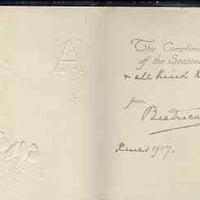 A
The Complime
of the Season
& all kind
from
Beatrice
1917.